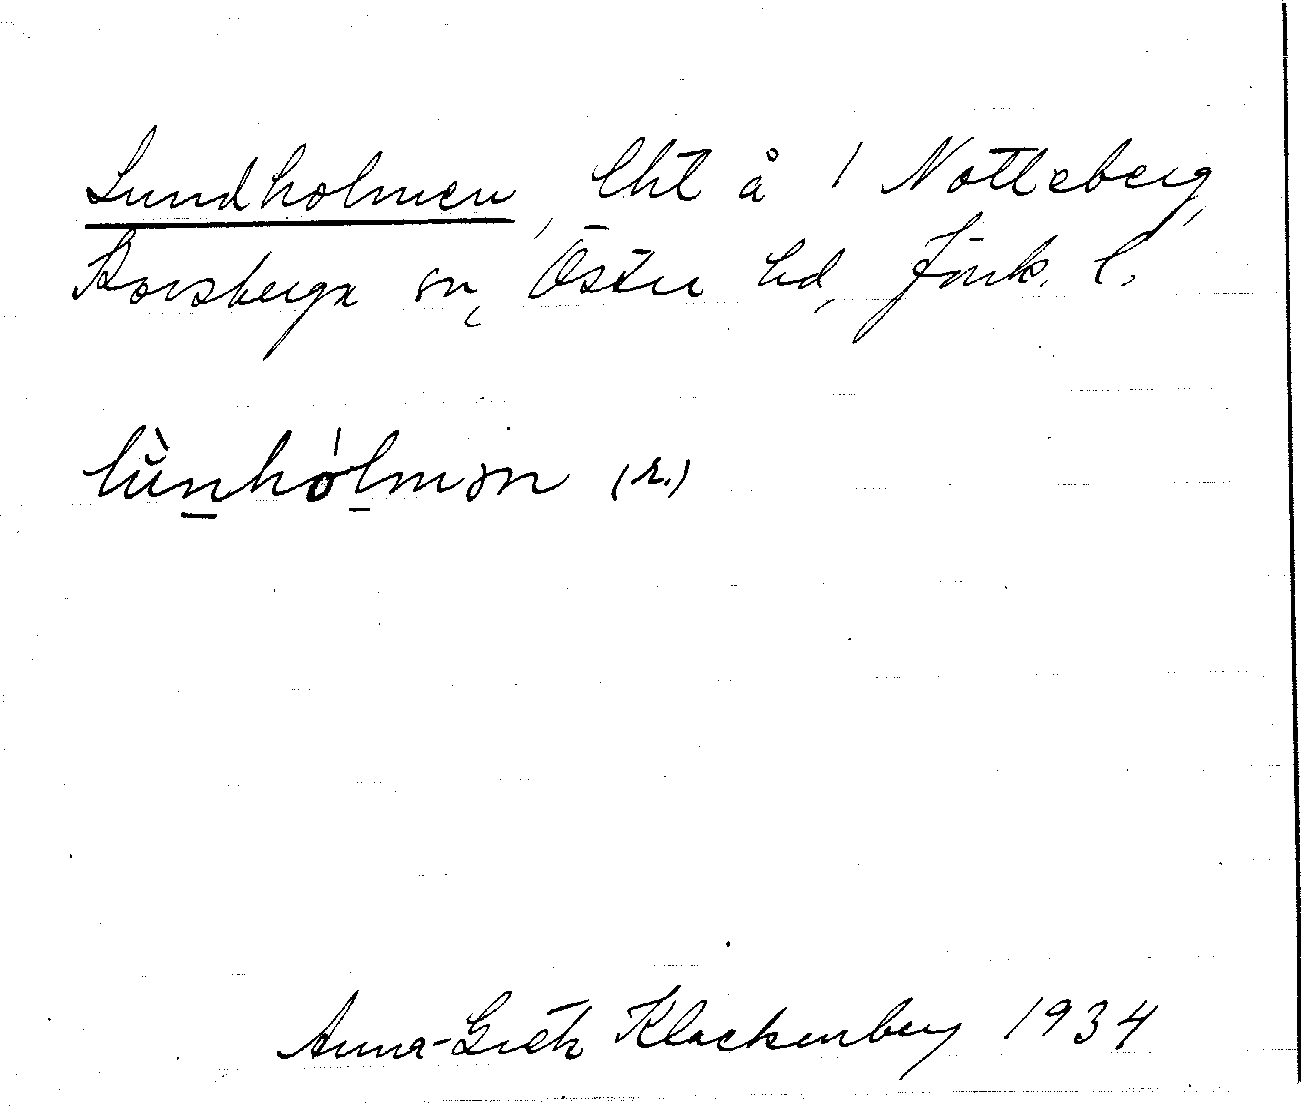 Lundholmen, lht å 1 Notteberg,
Korsberga sn, Östra hd, Jönk. l.
lùnhólmən (r.)
Anna-Greta Klackenberg 1934